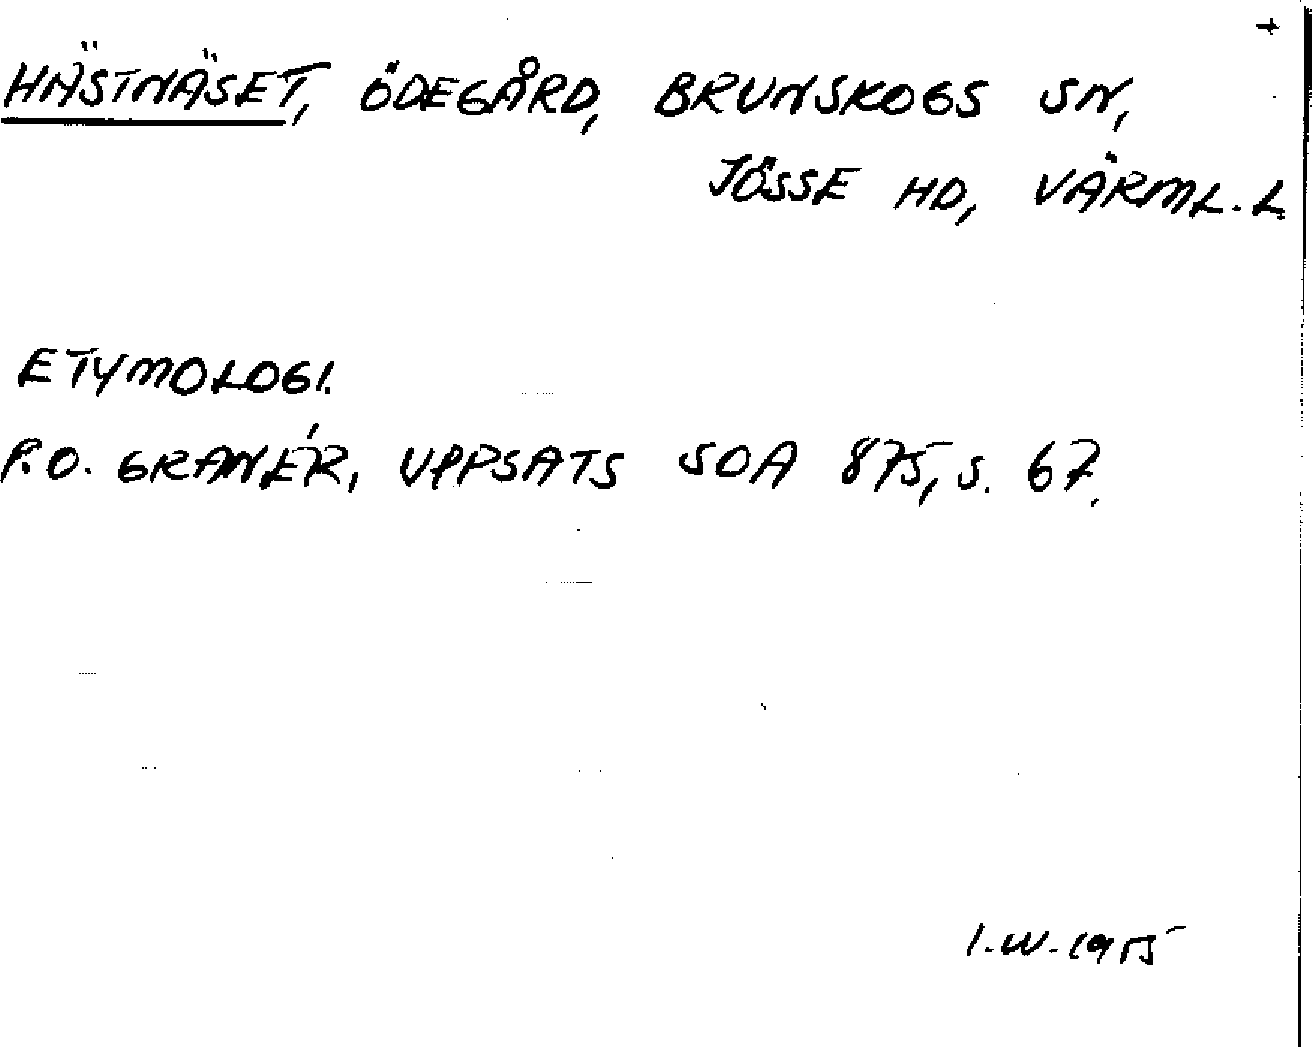 +
HÄSTNÄSET, ÖDEGÅRD, BRUNSKOGS SN,
JÖSSE HD, VÄRML. L.
ETYMOLOGI.
P.O. GRANÉR, UPPSATS SOA 875, s. 67.
I.W. 1955